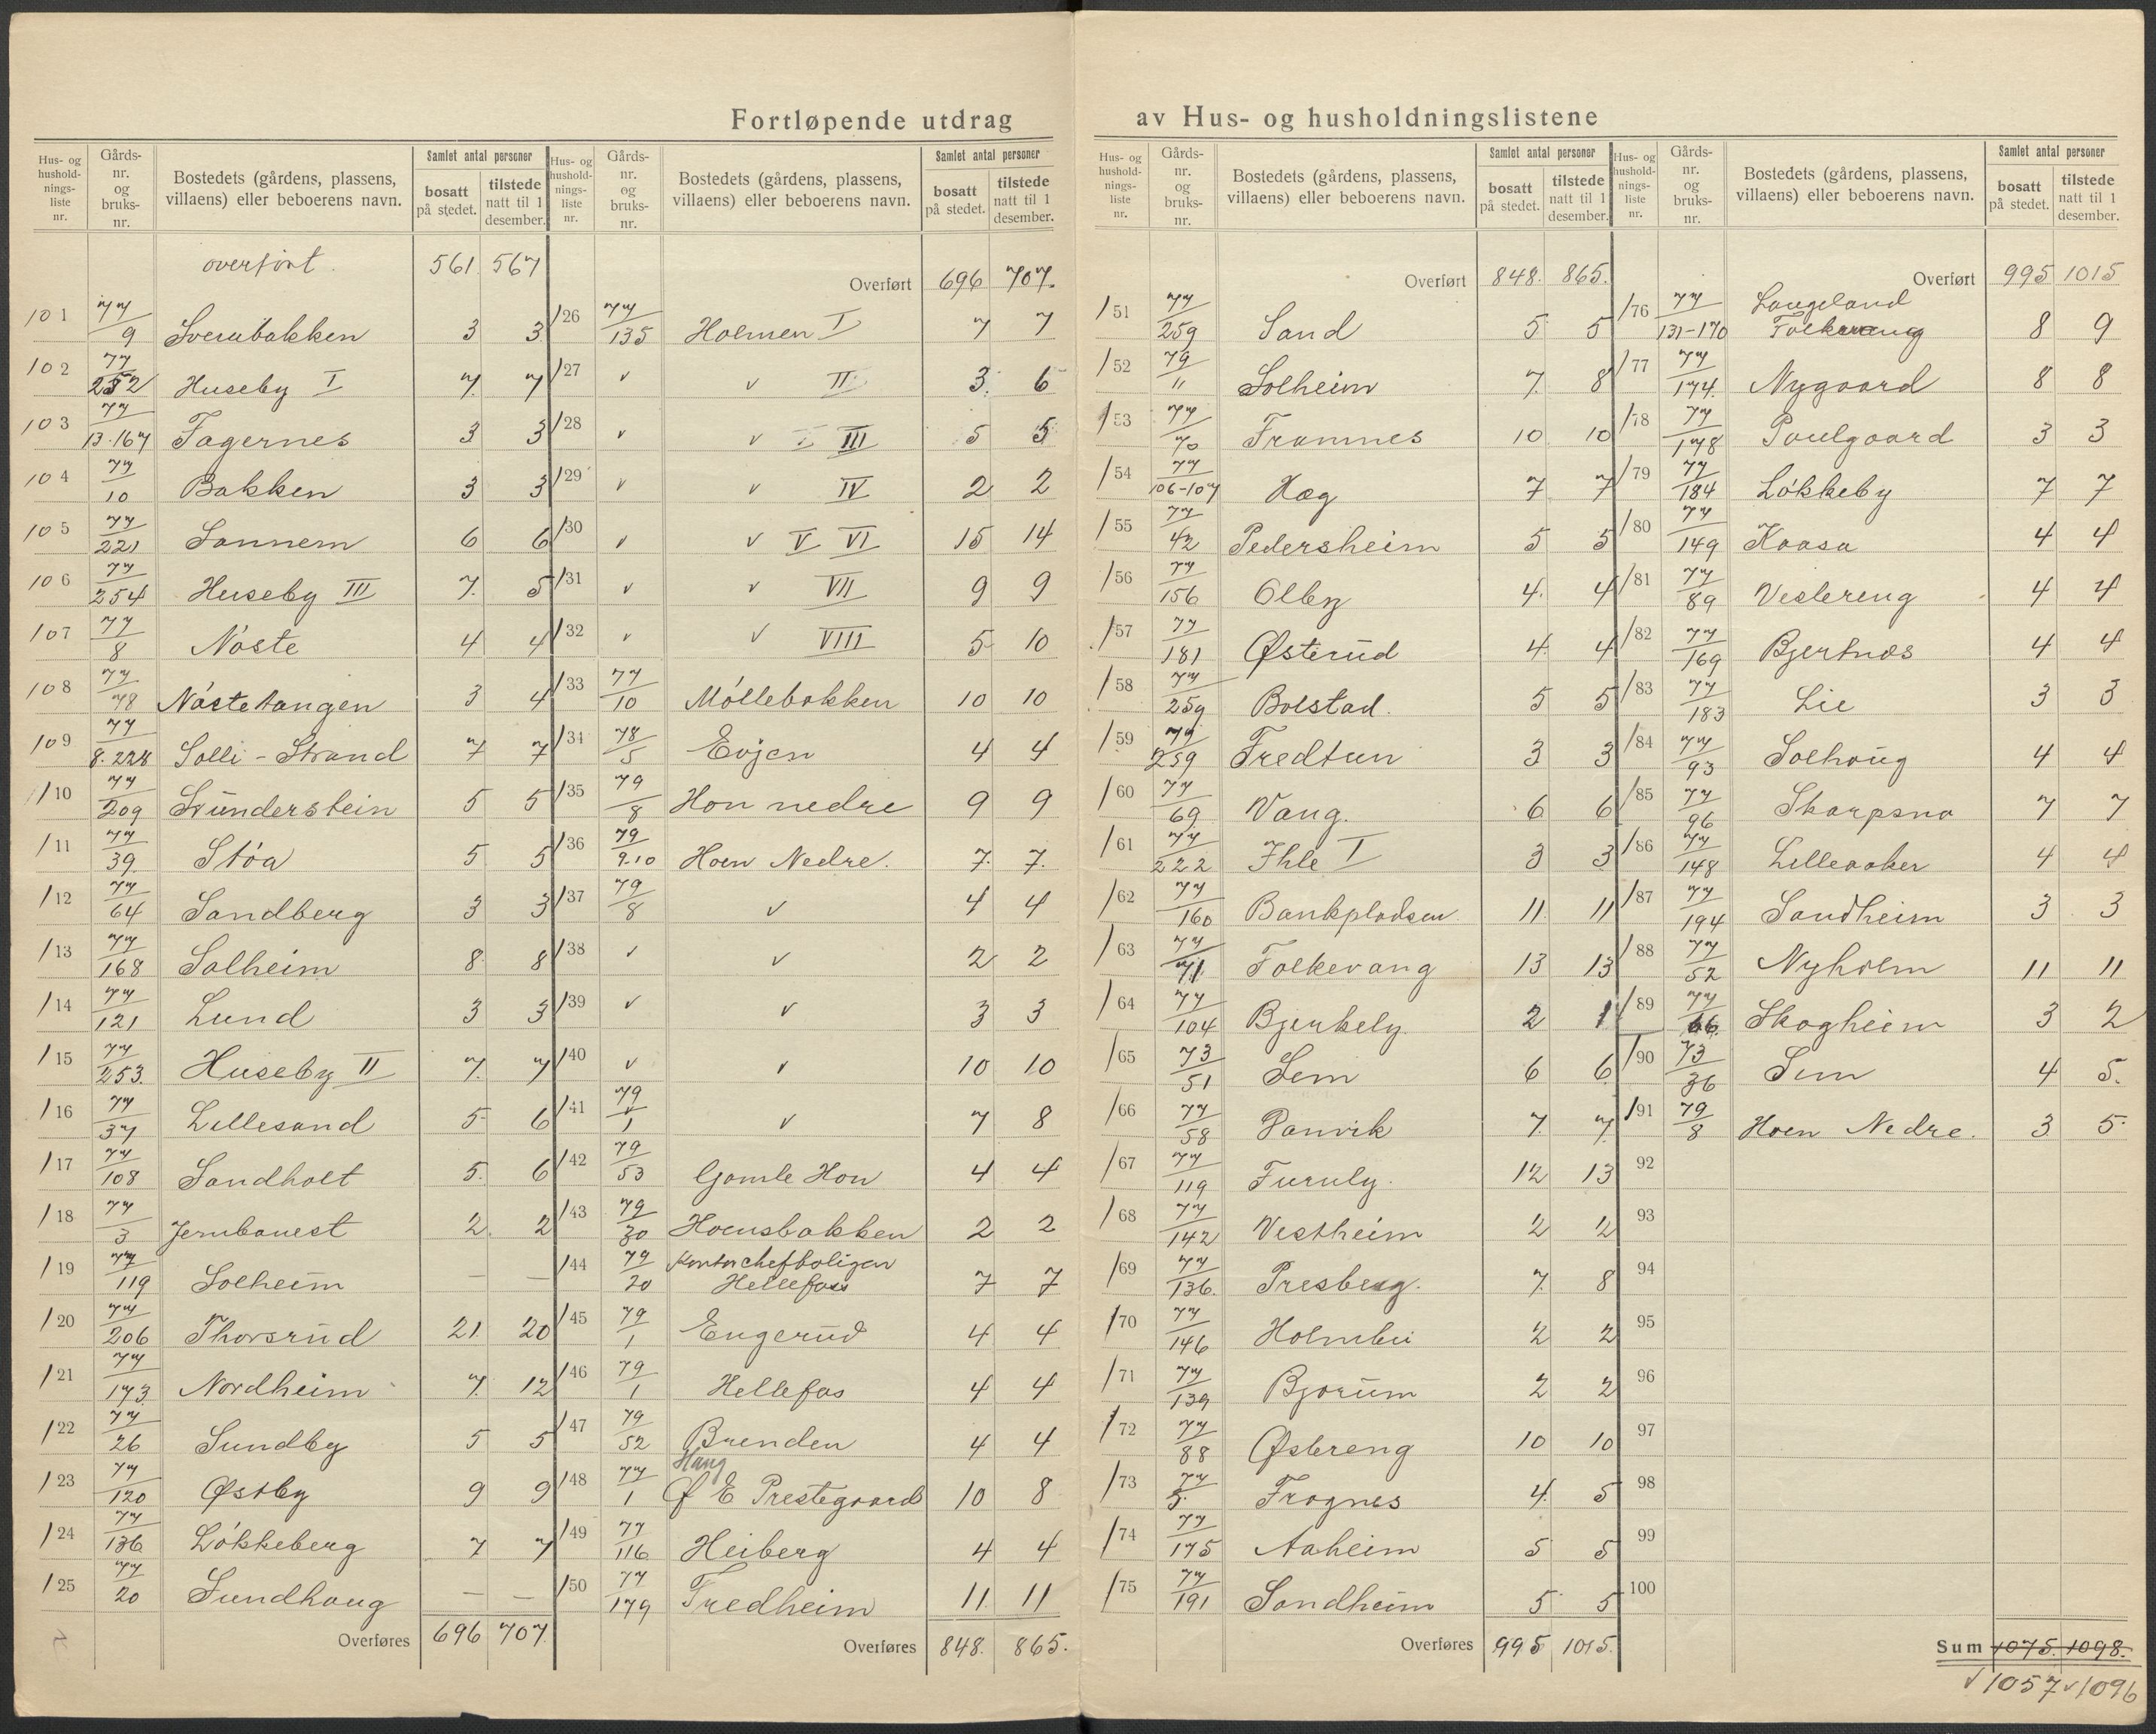 Fortløpende utdrag av Hus- og husholdningslistene
Hus- og hushold-nings-liste nr. Gårds-nr. og bruks-nr. Bostedets (gårdens, plassens, villaens) eller beboerens navn. Samlet antal personer bosatt på stedet. tilstede natt til 1 desember.
overført 561 567
101 77/9 Sverubakken 3 3
102 77/252 Huseby I 7 7
103 77/13-167 Fagernes 3 3
104 77/10 Bakken 3 3
105 77/221 Sannem 6 6
106 77/254 Huseby III 7 5
107 77/8 Nøste 4 4
108 77/78 Nøstetangen 3 4
109 77/8.228 Solli - Strand 7 7
110 77/209 5 5
111 77/39 Støa 5 5
112 77/64 Sandberg 3 3
113 77/168 Solheim 8 8
114 77/121 Lund 3 3
115 77/253 Huseby II 7 7
116 77/37 Lillesand 5 6
117 77/108 Sandholt 5 6
118 77/3 Jernbanest 2 2
119 77/119 Solheim — —
120 77/206 Thorsrud 21 20
121 77/173 Nordheim 7 12
122 77/26 Sundby 5 5
123 77/120 Østby 9 9
124 77/136 Løkkeberg 7 7
125 77/20 Sundhaug — —
Overføres 696 707
Hus- og hushold-nings-liste nr. Gårds-nr. og bruks-nr. Bostedets (gårdens, plassens, villaens) eller beboerens navn. Samlet antal personer bosatt på stedet. tilstede natt til 1 desember.
Overført 696 707.
126 77/135 Holmen I 7 7
127 v v II 3 6
128 v v III 5 5
129 v v IV 2 2
130 v v V VI 15 14
131 v v VII 9 9
132 v v VIII 5 10
133 77/10 Møllebakken 10 10
134 78/5 Evjen 4 4
135 79/8 Hon nedre 9 9
136 79/9-10 Hoen Nedre. 7 7
137 79/8 v 4 4
138 v v 2 2
139 v v 3 3
140 v v 10 10
141 79/1 v 7 8
142 79/53 Gamle Hon 4 4
143 79/30 Hoensbakken 2 2
144 79/20 Kontorchefboligen
Hellefoss 7 7
145 79/1 Engerud 4 4
146 79/1 Hellefos 4 4
147 79/52 Brenden 4 4
Haug
148 77/1 Of E Prestegaard 10 8
149 77/116 Heiberg 4 4
150 77/179 Fredheim 11 11
Overføres 848. 865.
Hus- og hushold-nings-liste nr. Gårds-nr. og bruks-nr. Bostedets (gårdens, plassens, villaens) eller beboerens navn. Samlet antal personer bosatt på stedet. tilstede natt til 1 desember.
Overført 848. 865.
151 77/259 Sand 5 5
152 79/11 Solheim 7 8
153 77/70 Framnes 10 10
154 77/106-107 Hæg 7 7
155 77/42 Pedersheim 5 5
156 77/156 Olby 4 4
157 77/181 Østerud 4 4
158 77/259 Bolstad. 5 5
159 79/259 Fredtun 3 3
160 77/69 Vang. 6 6
161 77/222 Ihle I 3 3
162 77/160 Bankpladsen 11 11
163 77/71 Folkevang 13 13
164 77/104 Bjerkely. 2 1
165 73/51 Sem 6 6
166 77/58 Panvik 7 7
167 77/119 Furuly. 12 13
168 77/142 Vestheim 2 2
169 77/136 Presberg. 7 8
170 77/146 Holmbu 2 2
171 77/139 Bjørum 2 2
172 77/88 Østereng 10 10
173 77/5. Frognes 4 5
174 77/175 Aaheim 5 5
175 77/191 Sandheim 5 5
Overføres 995 1015.
Hus- og hushold-nings-liste nr. Gårds-nr. og bruks-nr. Bostedets (gårdens, plassens, villaens) eller beboerens navn. Samlet antal personer bosatt på stedet. tilstede natt til 1 desember.
Overført 995 1015
Langeland
176 77/131-170 Folkevang 8 9
177 77/174. Nygaard 8 8
178 77/178 Paulgaard 3 3
179 77/184 Løkkeby 7 7
180 77/149 Kaasa 4 4
181 77/89 Vestereng 4 4
182 77/169 Bjertnæs 4 4
183 77/183 Lie 3 3
184 77/93 Solhaug 4 4
185 77/96 Skarpsno 7 7
186 77/148 Lilleaaker 4 4
187 77/194 Sandheim 3 3
188 77/52 Nyholm 11 11
189 77/66 Skogheim 3 2
190 73/36 Sem 4 5.
191 79/8 Hoen Nedre. 3 5
92
93
94
95
96
97
98
99
100
Sum 1075. 1098.
v 1057 v 1096